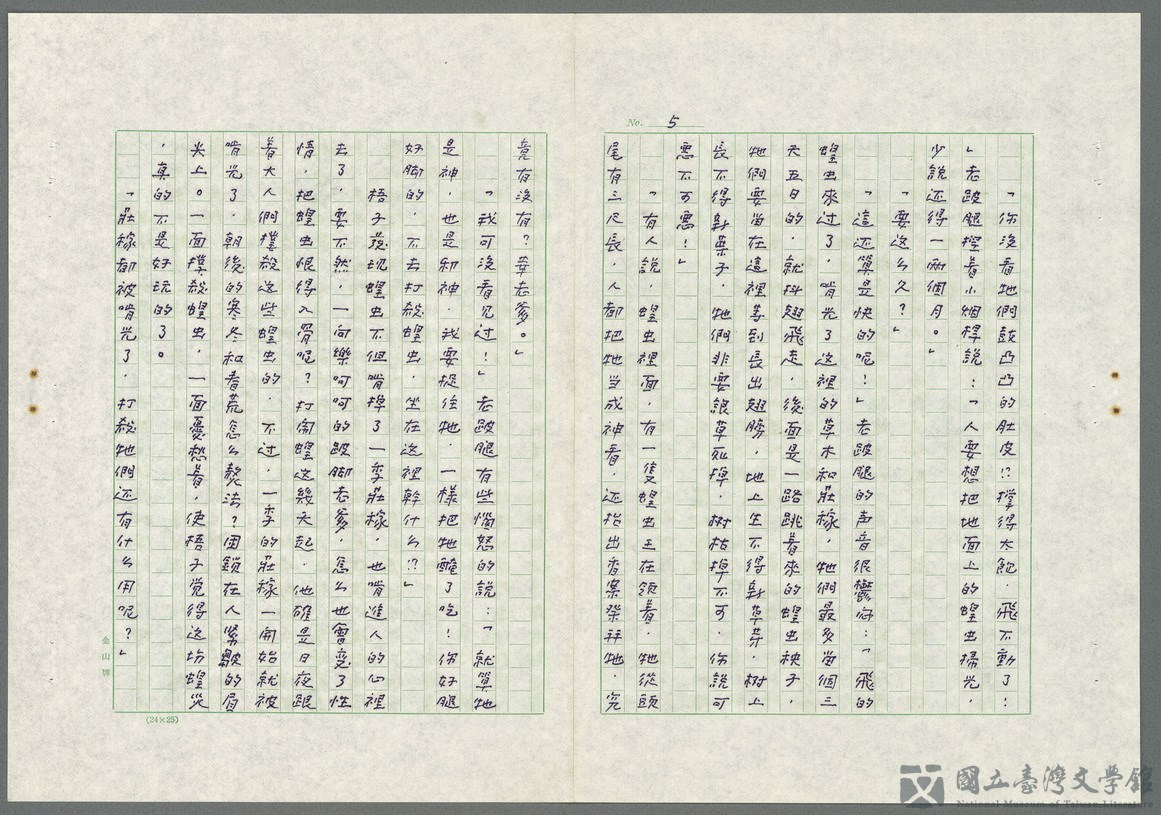 No. 5
「你沒看牠們鼓凸凸的肚皮!?撐得太飽,飛不動了!
」老跛腿捏着小烟桿說:「人要想把地面上的蝗虫掃光,
少說还得一兩個月。」
「要这么久?」
「這还算是快的呢!」老跛腿的声音很鬱冷:「飛的
蝗虫來过了,啃光了这裡的草木和莊稼,牠們最多留個三
天五日的,就抖翅飛走,後面是一路跳着來的蝗虫秧子,
牠們要留在這裡等到長出翅膀,地上生不得新草芽,树上
長不得新葉子,牠們非要讓草死掉,树枯掉不可,你說可
惡不可惡!」
「有人說,蝗虫裡面,有一隻蝗虫王在領着,牠從頭
尾有三尺長,人都把牠当成神看,还抬出香案祭拜牠,究
竟有沒有?辜老爹。」
「我可沒看見过!」老跛腿有些惱怒的說:「就算牠
是神,也是邪神,我要捉住牠,一樣把牠醃了吃!你好腿
好脚的,不去打殺蝗虫,坐在这裡幹什么!?」
梧子發現蝗虫不但啃掉了一季莊稼,也啃進人的心裡
去了,要不然,一向樂呵呵的跛脚老爹,怎么也會变了性
情,把蝗虫恨得入骨呢?打鬧蝗这幾天起,他確是日夜跟
着大人們撲殺这些蝗虫的,不过,一季的莊稼一開始就被
啃光了,朝後的寒冬和春荒怎么熬法?困鎖在人緊皺的眉
尖上。一面撲殺蝗虫,一面憂愁着,使梧子覚得这场蝗災
,真的不是好玩的了。
「莊稼都被啃光了,打殺牠們还有什么用呢?」
(24×25)
金山牌
國立臺灣文學館
National Museum of Taiwan Literature